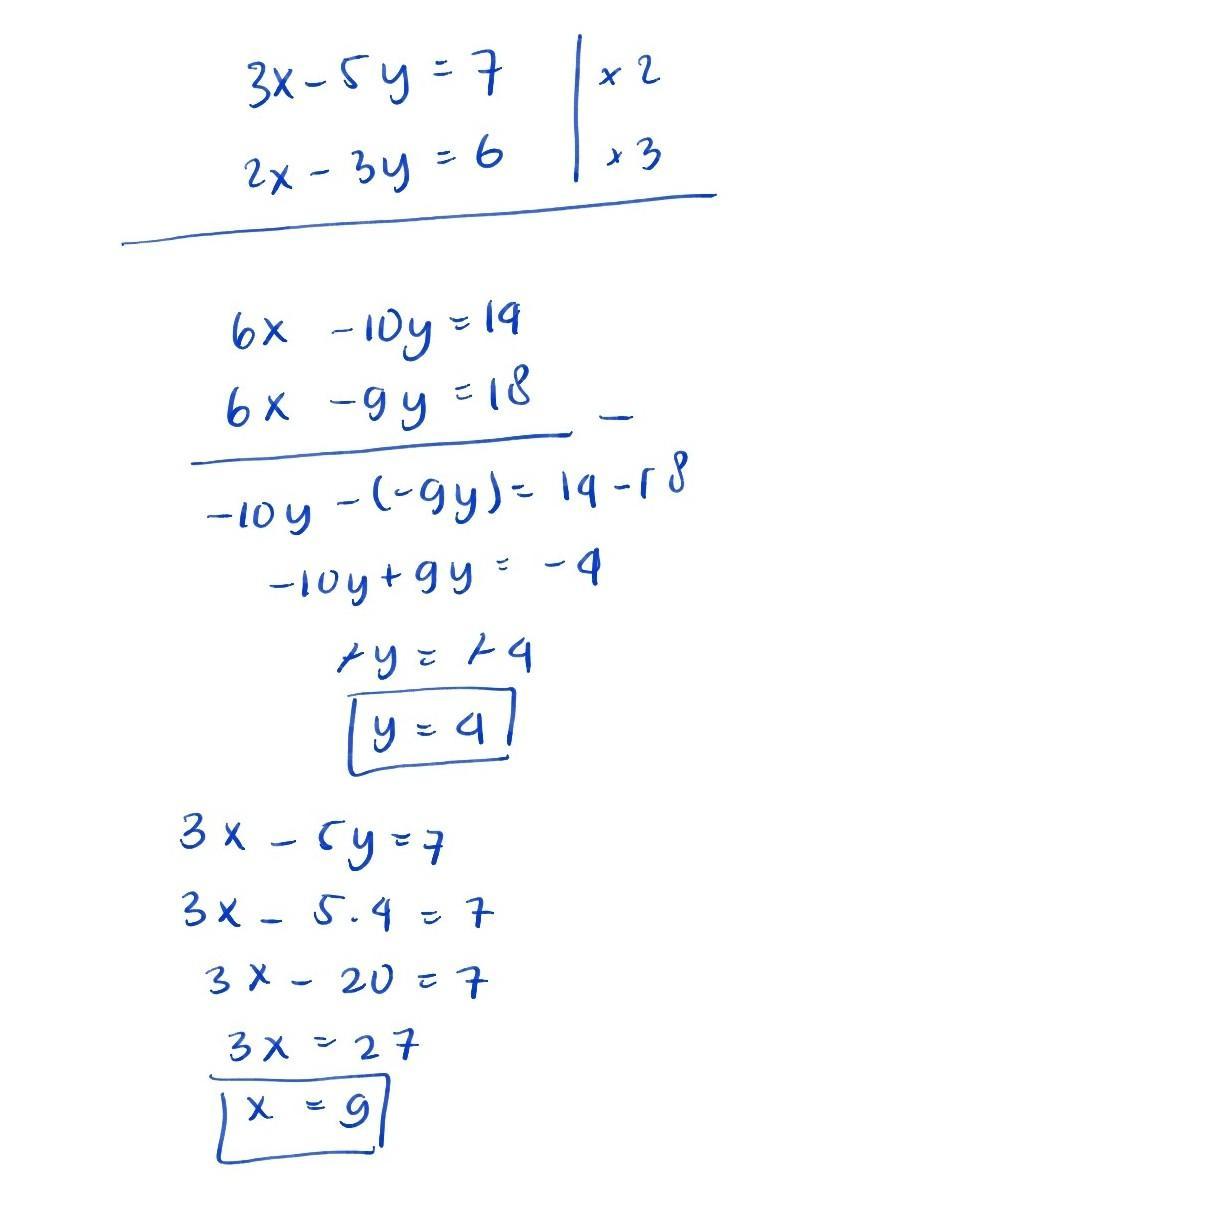 3x - 5y = 7 | × 2
2x - 3y = 6 | × 3
6x - 10y = 14
6x - 9y = 18 -
-10y - (-9y) = 14 - 18
-10y + 9y = -4
-y = -4
y = 4
3x - 5y = 7
3x - 5 . 4 = 7
3x - 20 = 7
3x = 27
x = 9